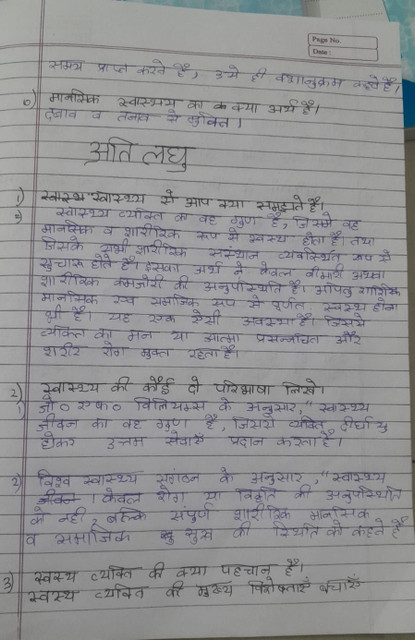 Page No.
Date
समय प्राप्त करते हैं, उसे ही वंशानुक्रम कहते हैं।
6) मानसिक स्वास्थ्य का क्या अर्थ है।
दबाव व तनाव से मुक्ति।
अति लघु
1) स्वास्थ्य से आप क्या समझते हैं।
उ) स्वास्थ्य व्यक्ति का वह गुण है, जिसमे वह
मानसिक व शारीरिक रूप से स्वस्थ होता है। तथा
जिसके सभी शारीरिक संस्थान व्यवस्थित रूप से
सुचारू होते हैं। इसका अर्थ न केवल बीमारी अथवा
शारीरिक कमजोरी की अनुपस्थिति है। अपितु शारीरिक
मानसिक एव समाजिक रूप से पूर्णत स्वस्थ होना
भी है। यह एक ऐसी अवस्था है। जिसमे
व्यक्ति का मन या आत्मा प्रसन्नचित और
शरीर रोग मुक्त रहता है।
2) स्वास्थ्य की कोई दो परिभाषा लिखे।
1) जे० एफ० विलियम्स के अनुसार, "स्वास्थ्य
जीवन का वह गुण है, जिससे व्यक्ति दीर्घायु
होकर उत्तम सेवाएँ प्रदान करता है।
2) विश्व स्वास्थ्य संगठन के अनुसार, "स्वास्थ्य
केवल रोग या विकृति की अनुपस्थिति
को नही, बल्कि संपूर्ण शारीरिक मानसिक
व समाजिक सुख की स्थिति को कहते हैं
3) स्वस्थ व्यक्ति की क्या पहचान है।
स्वस्थ व्यक्ति की मुख्य विशेषताएँ बताएँ